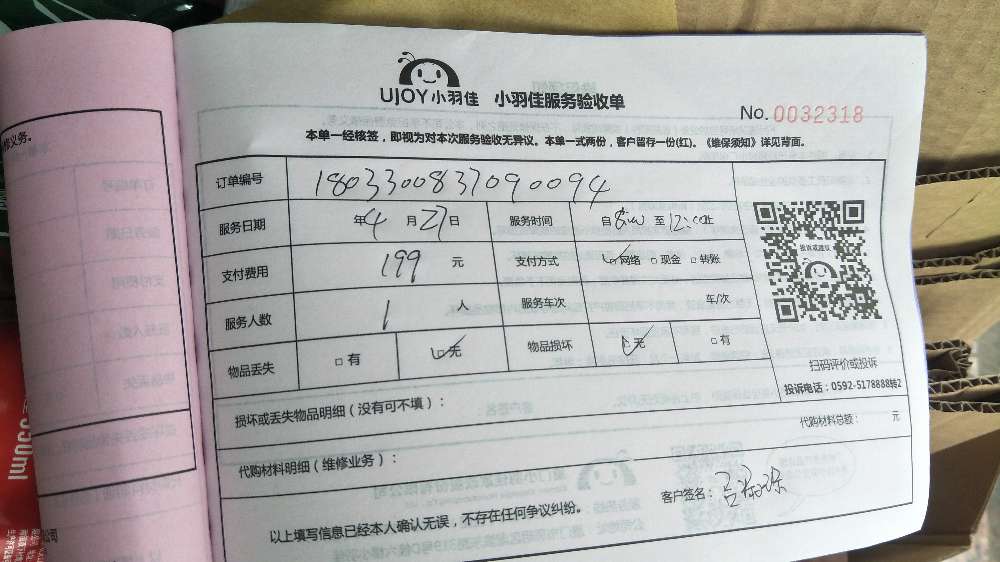 UJOY小羽佳 小羽佳服务验收单
No. 0032318
本单一经核签，即视为对本次服务验收无异议。本单一式两份，客户留存一份(红)。《维保须知》详见背面。
订单编号 1803300837090094
服务日期 年4月27日 服务时间 自8:00至12:00止
支付费用 199 元 支付方式 ☑网络 □现金 □转账
服务人数 1 人 服务车次 车/次
物品丢失 □有 ☑无 物品损坏 ☑无 □有
投诉或建议
扫码评价或投诉
投诉电话：0592-5178888转2
损坏或丢失物品明细（没有可不填）：
代购材料总额： 元
代购材料明细（维修业务）：
客户签名：
以上填写信息已经本人确认无误，不存在任何争议纠纷。
修义务。
550ml
公司